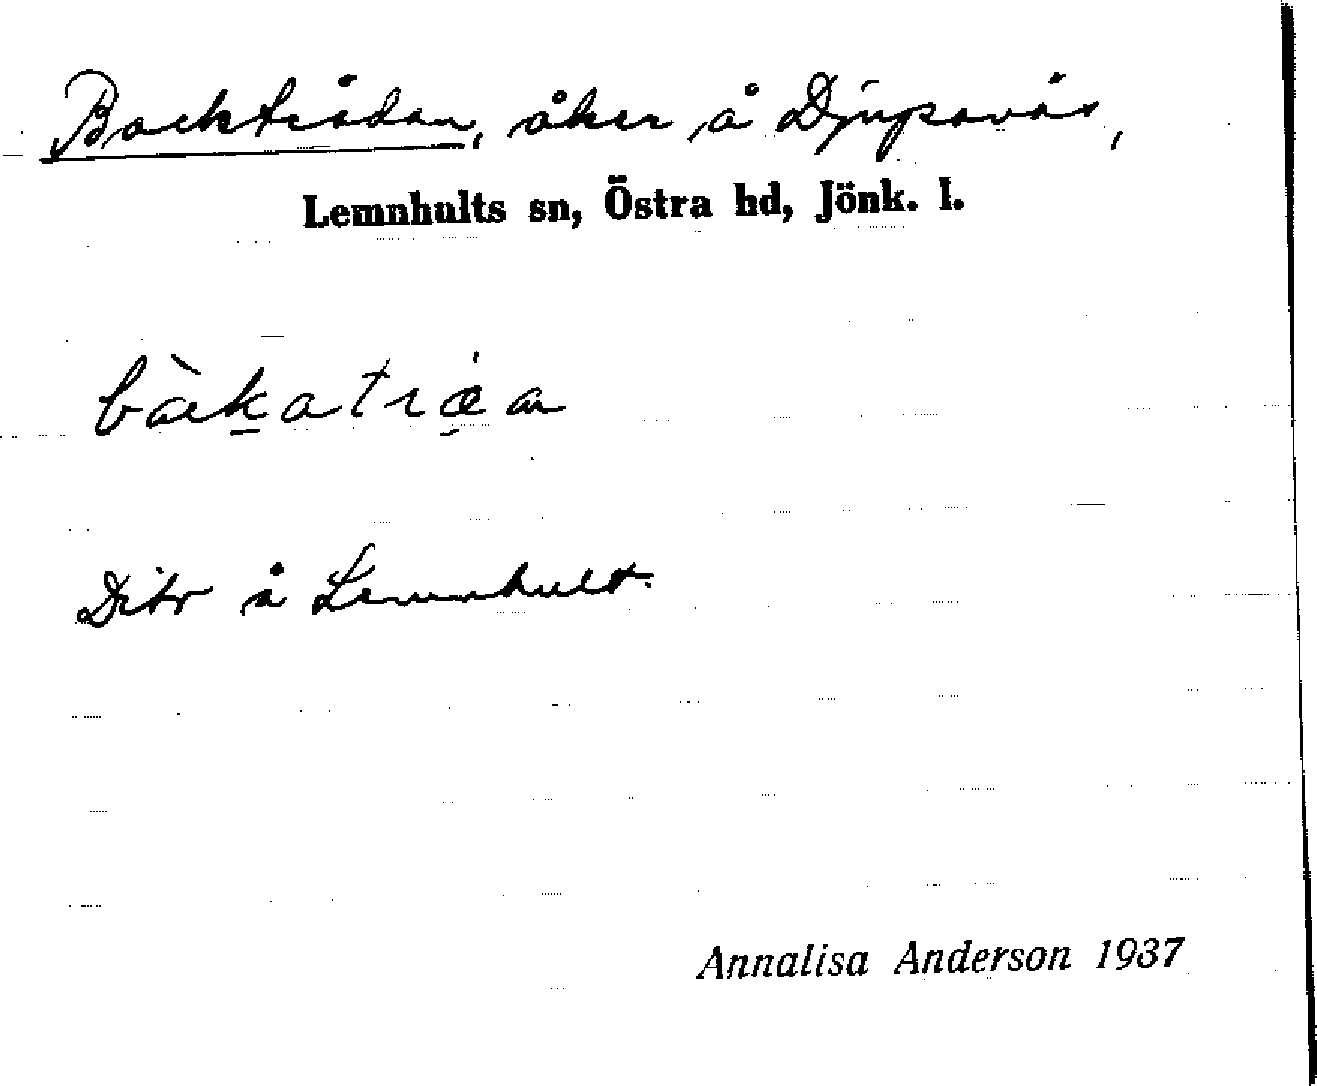 Backträdan, åker å Djupsvås,
Lemnhults sn, Östra hd, Jönk. l.
Ditr å Lemnhult.
Annalisa Anderson 1937